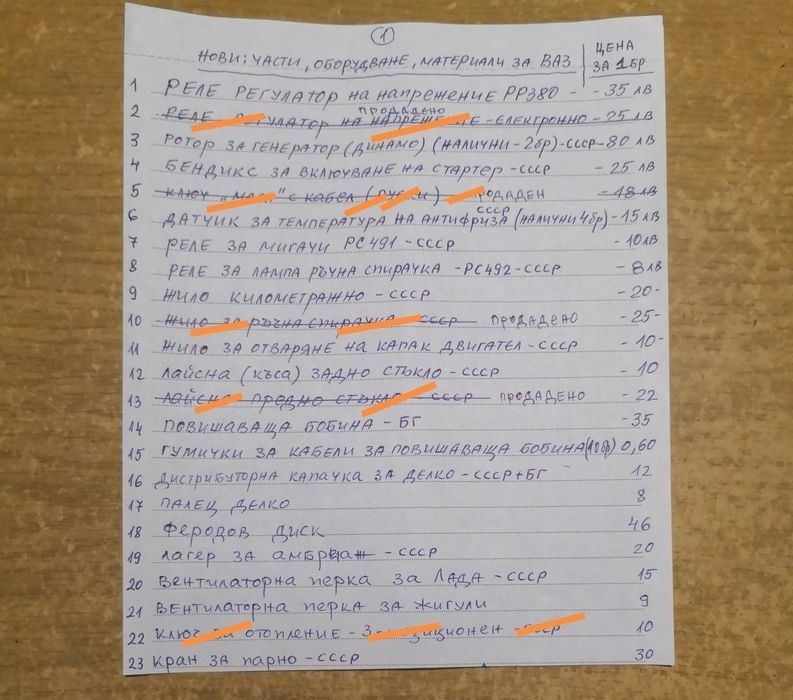 1
НОВИ: ЧАСТИ, ОБОРУДВАНЕ, МАТЕРИАЛИ ЗА ВАЗ
ЦЕНА
ЗА 1БР
1 РЕЛЕ РЕГУЛАТОР на напрежение РР380 - - 35 ЛВ
ПРОДАДЕНО
2 РЕЛЕ РЕГУЛАТОР НА НАПРЕЖЕНИЕ - ЕЛЕКТРОННО - 25 ЛВ
3 РОТОР ЗА ГЕНЕРАТОР (ДИНАМО) (НАЛИЧНИ - 2бр) - СССР - 80 ЛВ
4 БЕНДИКС ЗА ВКЛЮЧВАНЕ НА СТАРТЕР - СССР - 25 ЛВ
5 КЛЮЧ С КАБЕЛ ПРОДАДЕН - 48 ЛВ
СССР
6 ДАТЧИК ЗА ТЕМПЕРАТУРА НА АНТИФРИЗА (НАЛИЧНИ 4бр) - 15 ЛВ
7 РЕЛЕ ЗА МИГАЧИ РС491 - СССР - 10ЛВ
8 РЕЛЕ ЗА ЛАМПА РЪЧНА СПИРАЧКА - РС492 - СССР - 8 ЛВ
9 ЖИЛО КИЛОМЕТРАЖНО - СССР - 20 -
10 ЖИЛО ЗА РЪЧНА СПИРАЧКА - СССР ПРОДАДЕНО - 25 -
11 ЖИЛО ЗА ОТВАРЯНЕ НА КАПАК ДВИГАТЕЛ - СССР - 10 -
12 ЛАЙСНА (КЪСА) ЗАДНО СТЪКЛО - СССР - 10
13 ЛАЙСНА ПРЕДНО СТЪКЛО - СССР ПРОДАДЕНО - 22
14 ПОВИШАВАЩА БОБИНА - БГ - 35
15 ГУМИЧКИ ЗА КАБЕЛИ ЗА ПОВИШАВАЩА БОБИНА (10бр) 0,60
16 ДИСТРИБУТОРНА КАПАЧКА ЗА ДЕЛКО - СССР + БГ 12
17 ПАЛЕЦ ДЕЛКО 8
18 ФЕРОДОВ ДИСК 46
19 ЛАГЕР ЗА - СССР 20
20 ВЕНТИЛАТОРНА ПЕРКА ЗА ЛАДА - СССР 15
21 ВЕНТИЛАТОРНА ПЕРКА ЗА ЖИГУЛИ 9
22 КЛЮЧ ЗА ОТОПЛЕНИЕ - 3-ПОЗИЦИОНЕН - СССР 10
23 КРАН ЗА ПАРНО - СССР 30